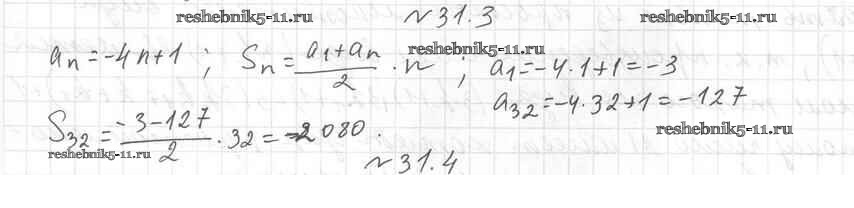 reshebnik5-11.ru №31.3 reshebnik5-11.ru
aₙ = -4n+1 ; Sₙ = (a₁+aₙ)/2 · n ; a₁ = -4·1+1 = -3
reshebnik5-11.ru
a₃₂ = -4·32+1 = -127
S₃₂ = (-3-127)/2 · 32 = -2080.
reshebnik5-11.ru
reshebnik5-11.ru
№31.4